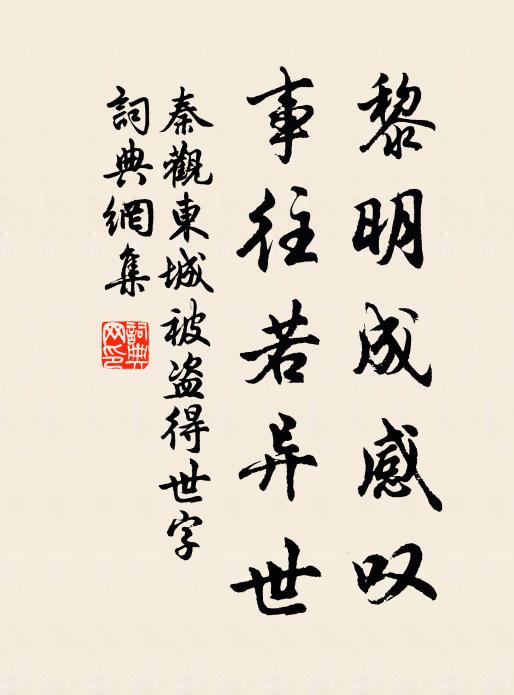 黎明成感叹
事往若异世
秦觀東城被盗得世字
詞典網集
詞典网印